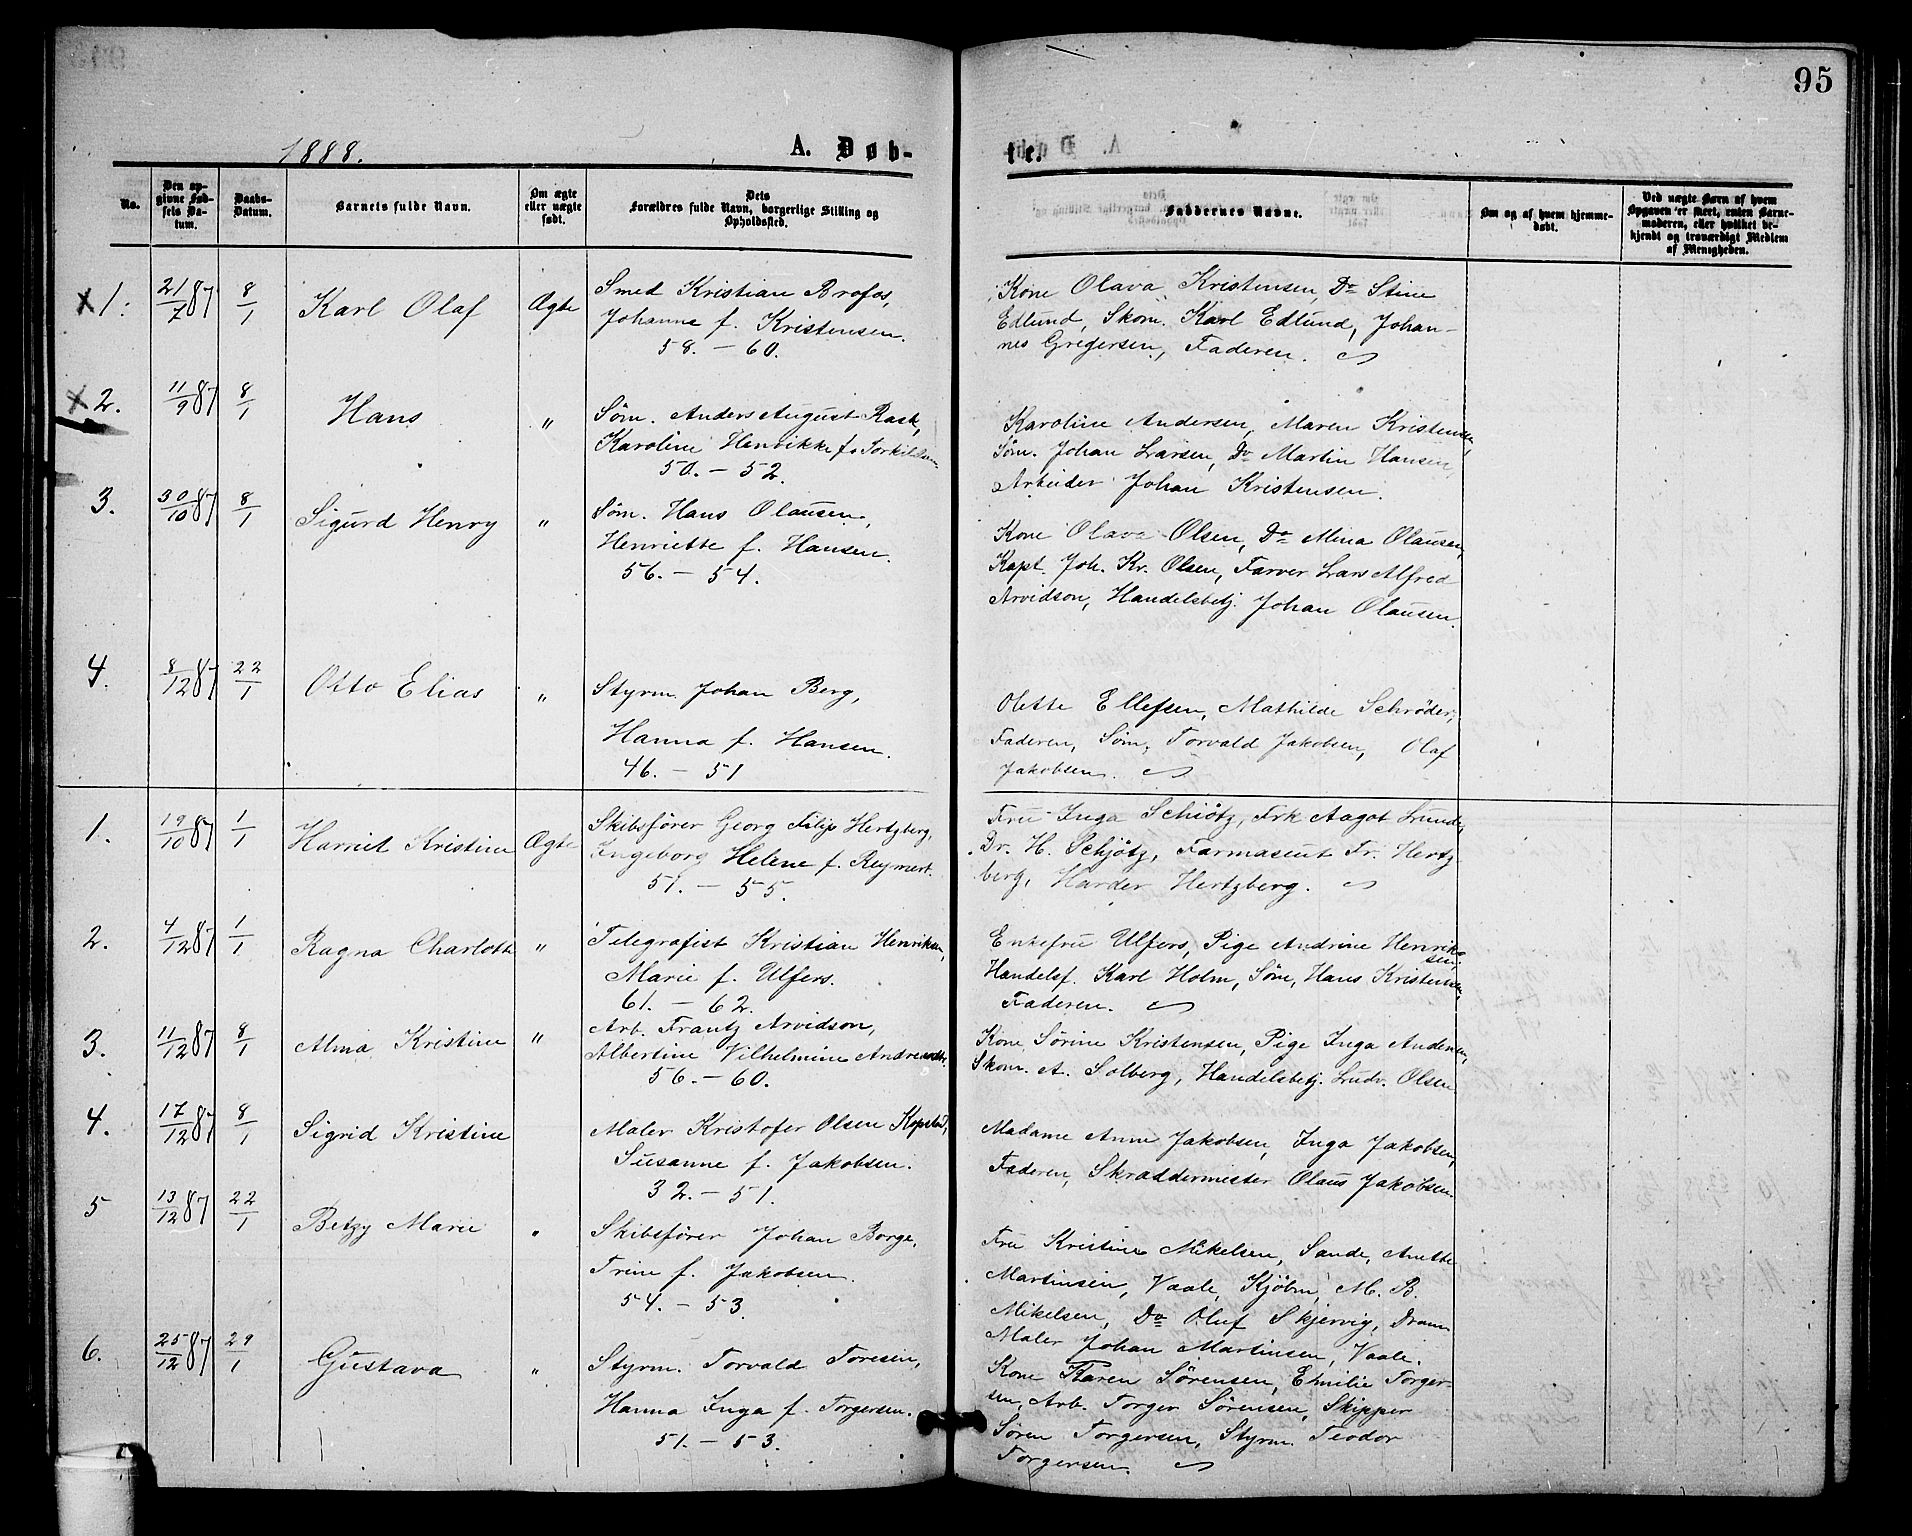 95
1888.
A. Døb-
te.
No.
Den op-
givne Fød-
sels Da-
tum.
Daabs-
Datum.
Barnets fulde Navn.
Om ægte
eller uægte
født.
Dets
Forældres fulde Navn, borgerlige Stilling og
Opholdssted.
Faddernes Navne.
Om og af hvem hjemme-
døbt.
Ved uægte Børn af hvem
Opgaven er skeet, enten Barne-
moderen, eller hvilket be-
kjendt og troværdigt Medlem
af Menigheden.
x 1. 21/7 87 8/1 Karl Olaf Ægte Smed Kristian Brofos,
Johanne f. Kristensen.
58. - 60.
Kone Olava Kristensen, Do Stine
Edlund, Skom. Karl Edlund, Johan-
nes Gregersen, Faderen.
x 2. 11/9 87 8/1 Hans " Søm. Anders August Rask,
Karoline Henrikke f. Torkildsen
50. - 52.
Karoline Andersen, Maren Kristensen,
Søm. Johan Larsen, Do Martin Hansen,
Arbeider Johan Kristensen.
3. 30/10 87 8/1 Sigurd Henry " Søm. Hans Olausen,
Henriette f. Hansen.
56. - 54.
Kone Olava Olsen, Do Mina Olausen,
Kapt. Joh. Kr. Olsen, Farver Lars Alfred
Arvidson, Handelsbetj. Johan Olausen.
4. 8/12 87 22/1 Otto Elias " Styrm. Johan Berg,
Hanna f. Hansen.
46. - 51
Olette Ellefsen, Mathilde Schrøder,
Faderen, Søm. Torvald Jakobsen, Olaf
Jakobsen.
1. 19/10 87 1/1 Harriet Kristine Ægte Skibsfører Georg Filip Hertzberg,
Ingeborg Helene f. Reymert.
51. - 55.
Fru Inga Schiøtz, Frk Aagot Lunde,
Dr. H. Schjøtz, Farmaseut Fr. Hertz
berg, Harder Hertzberg.
2. 4/12 87 1/1 Ragna Charlotte " Telegrafist Kristian Henriksen,
Marie f. Ulfers.
61. - 62.
Enkefru Ulfers, Pige Andrine Henrik-
sen,
Handelsf. Karl Holm, Søm, Hans Kristensen,
Faderen.
3. 11/12 87 8/1 Alma Kristine " Arb. Frantz Arvidson,
Albertine Vilhelmine Andreasdtr.
56. - 60.
Kone Sørine Kristensen, Pige Inga Andersen,
Skom. A. Solberg, Handelsbetj. Ludv. Olsen
4. 17/12 87 8/1 Sigrid Kristine Maler Kristofer Olsen Kopstad,
Susanne f. Jakobsen.
32. - 51.
Madame Anne Jakobsen, Inga Jakobsen,
Faderen, Skræddermester Olaus Jakobsen.
5 13/12 87 22/1 Betzy Marie " Skibsfører Johan Borge,
Trine f. Jakobsen.
54. - 53.
Fru Kristine Mikelsen, Sande, Anette
Martinsen, Vaale, Kjøbm. M. B.
Mikelsen, Do Oluf Skjervig, Dram
Maler Johan Martinsen, Vaale.
6. 25/12 87 29/1 Gustava " Styrm. Torvald Toresen,
Hanna Inga f. Torgersen.
51. - 53.
Kone Karen Sørensen, Emilie Torger-
sen, Arb. Torger Sørensen, Skipper
Søren Torgersen, Styrm. Teodor
Torgersen.